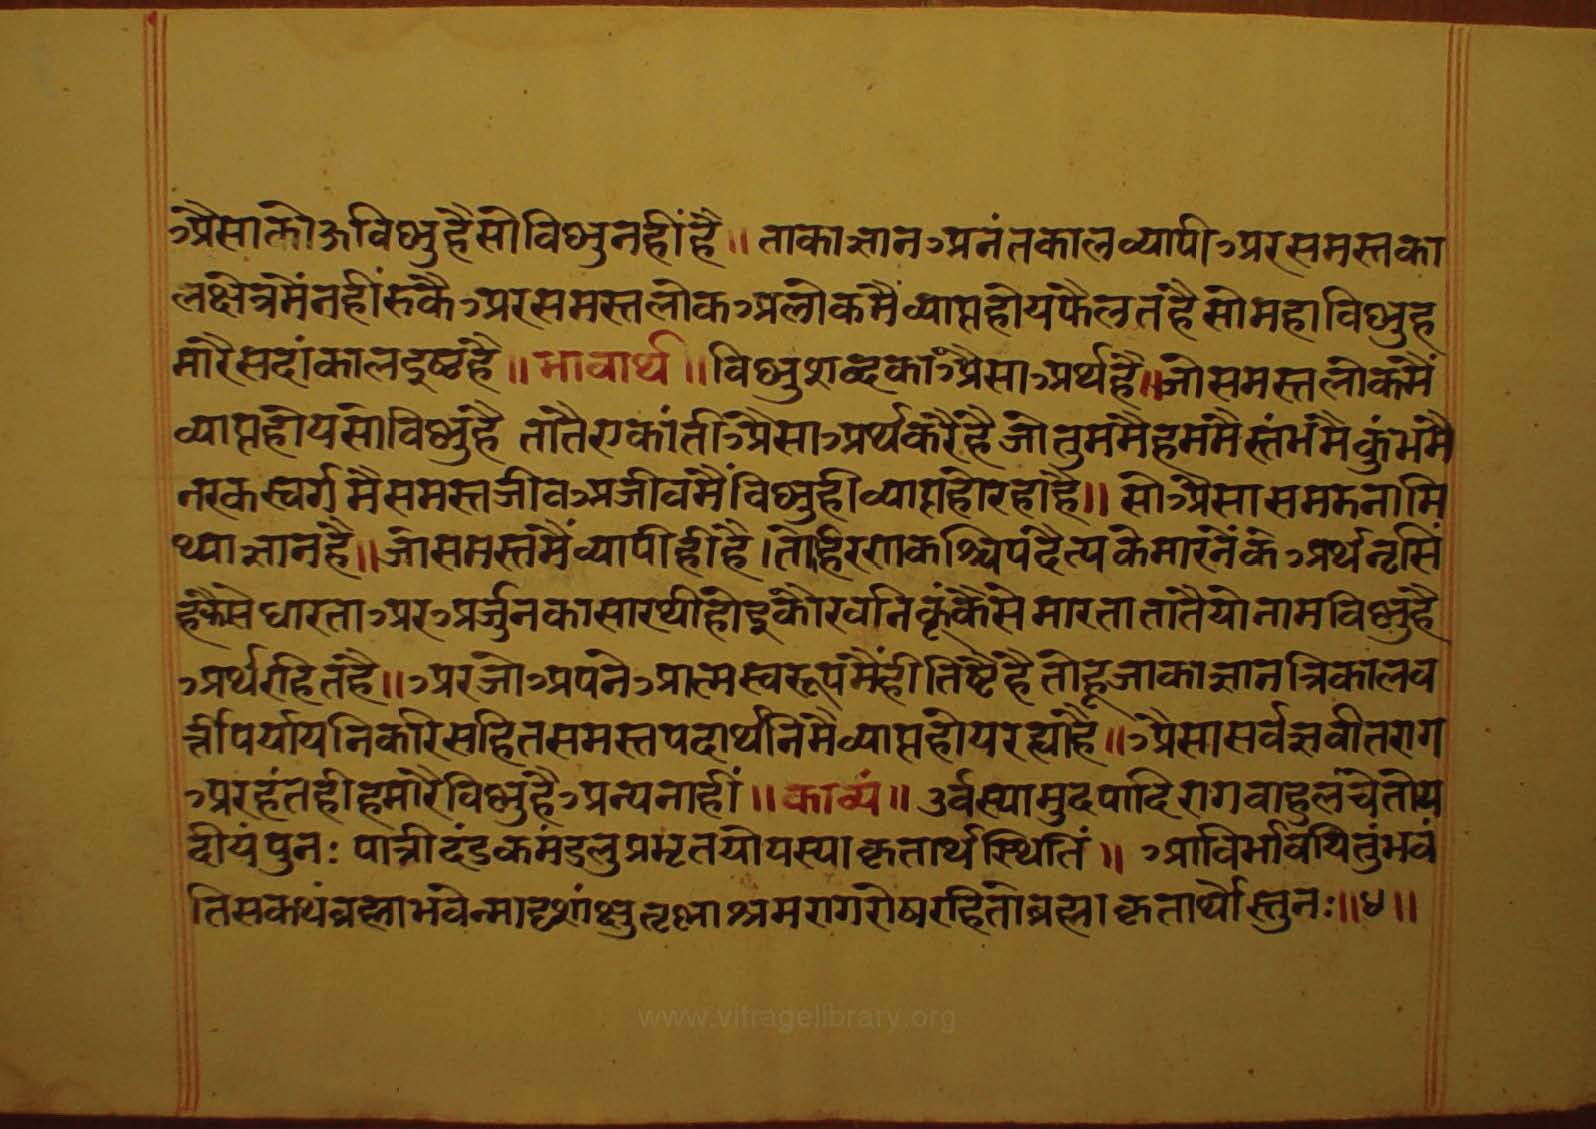 अैसा कोऊ विभु है सो विभु नहीं है ॥ ताका ज्ञान अनंत काल व्यापी अर समस्त का
ल क्षेत्र मैं नहीं रुकै अर समस्त लोक अलोक मैं व्याप्त होय फैलत है सो महा विभु ह
मारै सदां काल इष्ट है ॥ भावार्थ ॥ विभु शब्द का अैसा अर्थ है ॥ जो समस्त लोक मैं
व्याप्त होय सो विभु है तातै एकांती अैसा अर्थ करै है जो तुम मै हम मै स्तंभ मै कुंभ मै
नरक स्वर्ग मै समस्त जीव अजीव मैं विभु ही व्याप्त हो रहा है ॥ सो अैसा समझना मि
थ्या ज्ञान है ॥ जो समस्त मैं व्यापी ही है । तो हिरणाकश्यिप दैत्य के मारनें के अर्थ नृसिं
ह कैसे धारता अर अर्जुन का सारथी होइ कौरवनि कूं कैसे मारता तातै यो नाम विभु है
अर्थ रहित है ॥ अर जो अपने आत्म स्वरूप मैं ही तिष्टै है तोहू जाका ज्ञान त्रिकाल व
र्त्ती पर्यायनि करि सहित समस्त पदार्थनि मै व्याप्त होय रह्यो है ॥ अैसा सर्वज्ञ वीतराग
अरहंत ही हमारै विभु है अन्य नाहीं ॥ काव्यं ॥ उर्वस्यामुदपादि रागवाहुलं चेतो य
दीयं पुनः पात्री दंडकमंडलु प्रभृतयो यस्याकृतार्थ स्थितिं ॥ आविर्भावयितुं भवं
ति सकथं ब्रह्मा भवेन्मादृशां क्षुत्तृष्णाश्रमरागरोषरहितो ब्रह्मा कृतार्थोस्तु नः ॥ ४ ॥
www.vitragelibrary.org